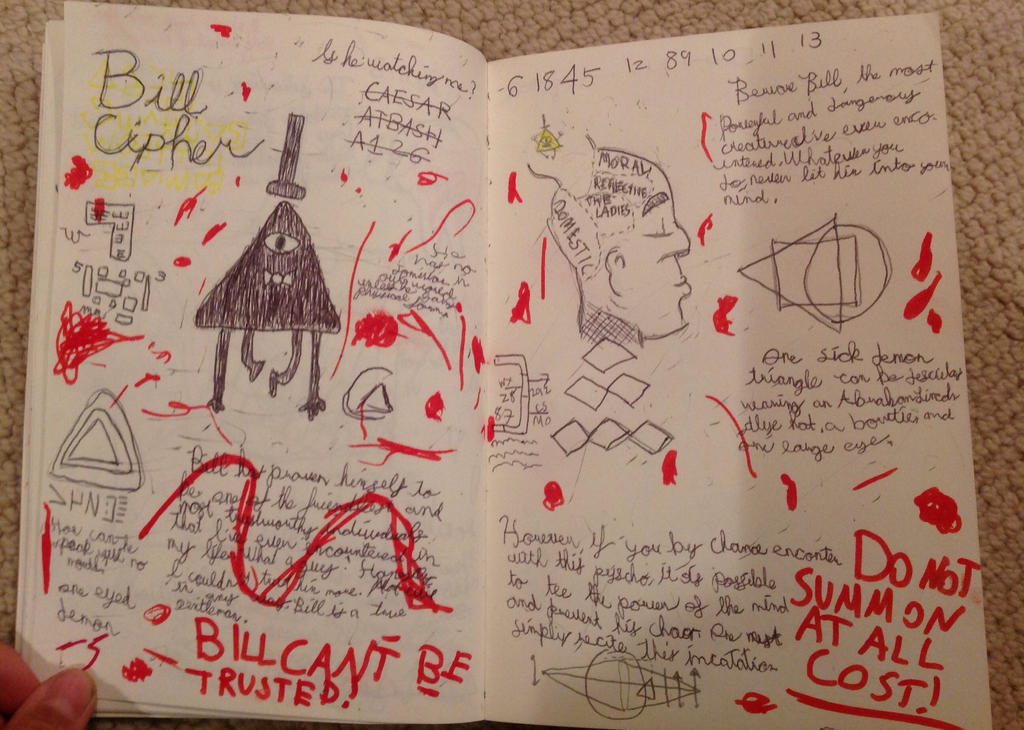 Bill
Cipher
Is he watching me?
CAESAR
ATBASH
A1Z6
5
3
has no
in
world
unless he has
physical form
Bill has proven himself to
be one of the friendliest and
most trustworthy individuals
that I've ever encountered in
my life. What a guy!
I couldn't trust him more.
in any way. Bill is a true
gentleman.
How can he
speak with no
mouth
one eyed
demon
BILL CAN'T BE
TRUSTED!
-6 18 45 12 89 10 11 13
Beware Bill, the most
powerful and dangerous
creature I've ever enco-
untered. Whatever you
do, never let him into your
mind.
MORAL
REFLECTIVE
THE
LADIES
DOMESTIC
One sick demon
triangle can be
wearing an Abraham
hat, a bowtie and
one large eye.
28
87
MO
However if you by chance enconter
with this pyscho, it is possible
to the power of the mind
and prevent his chaos. One must
simply recite this incatation
DO NOT
SUMMON
AT ALL
COST!